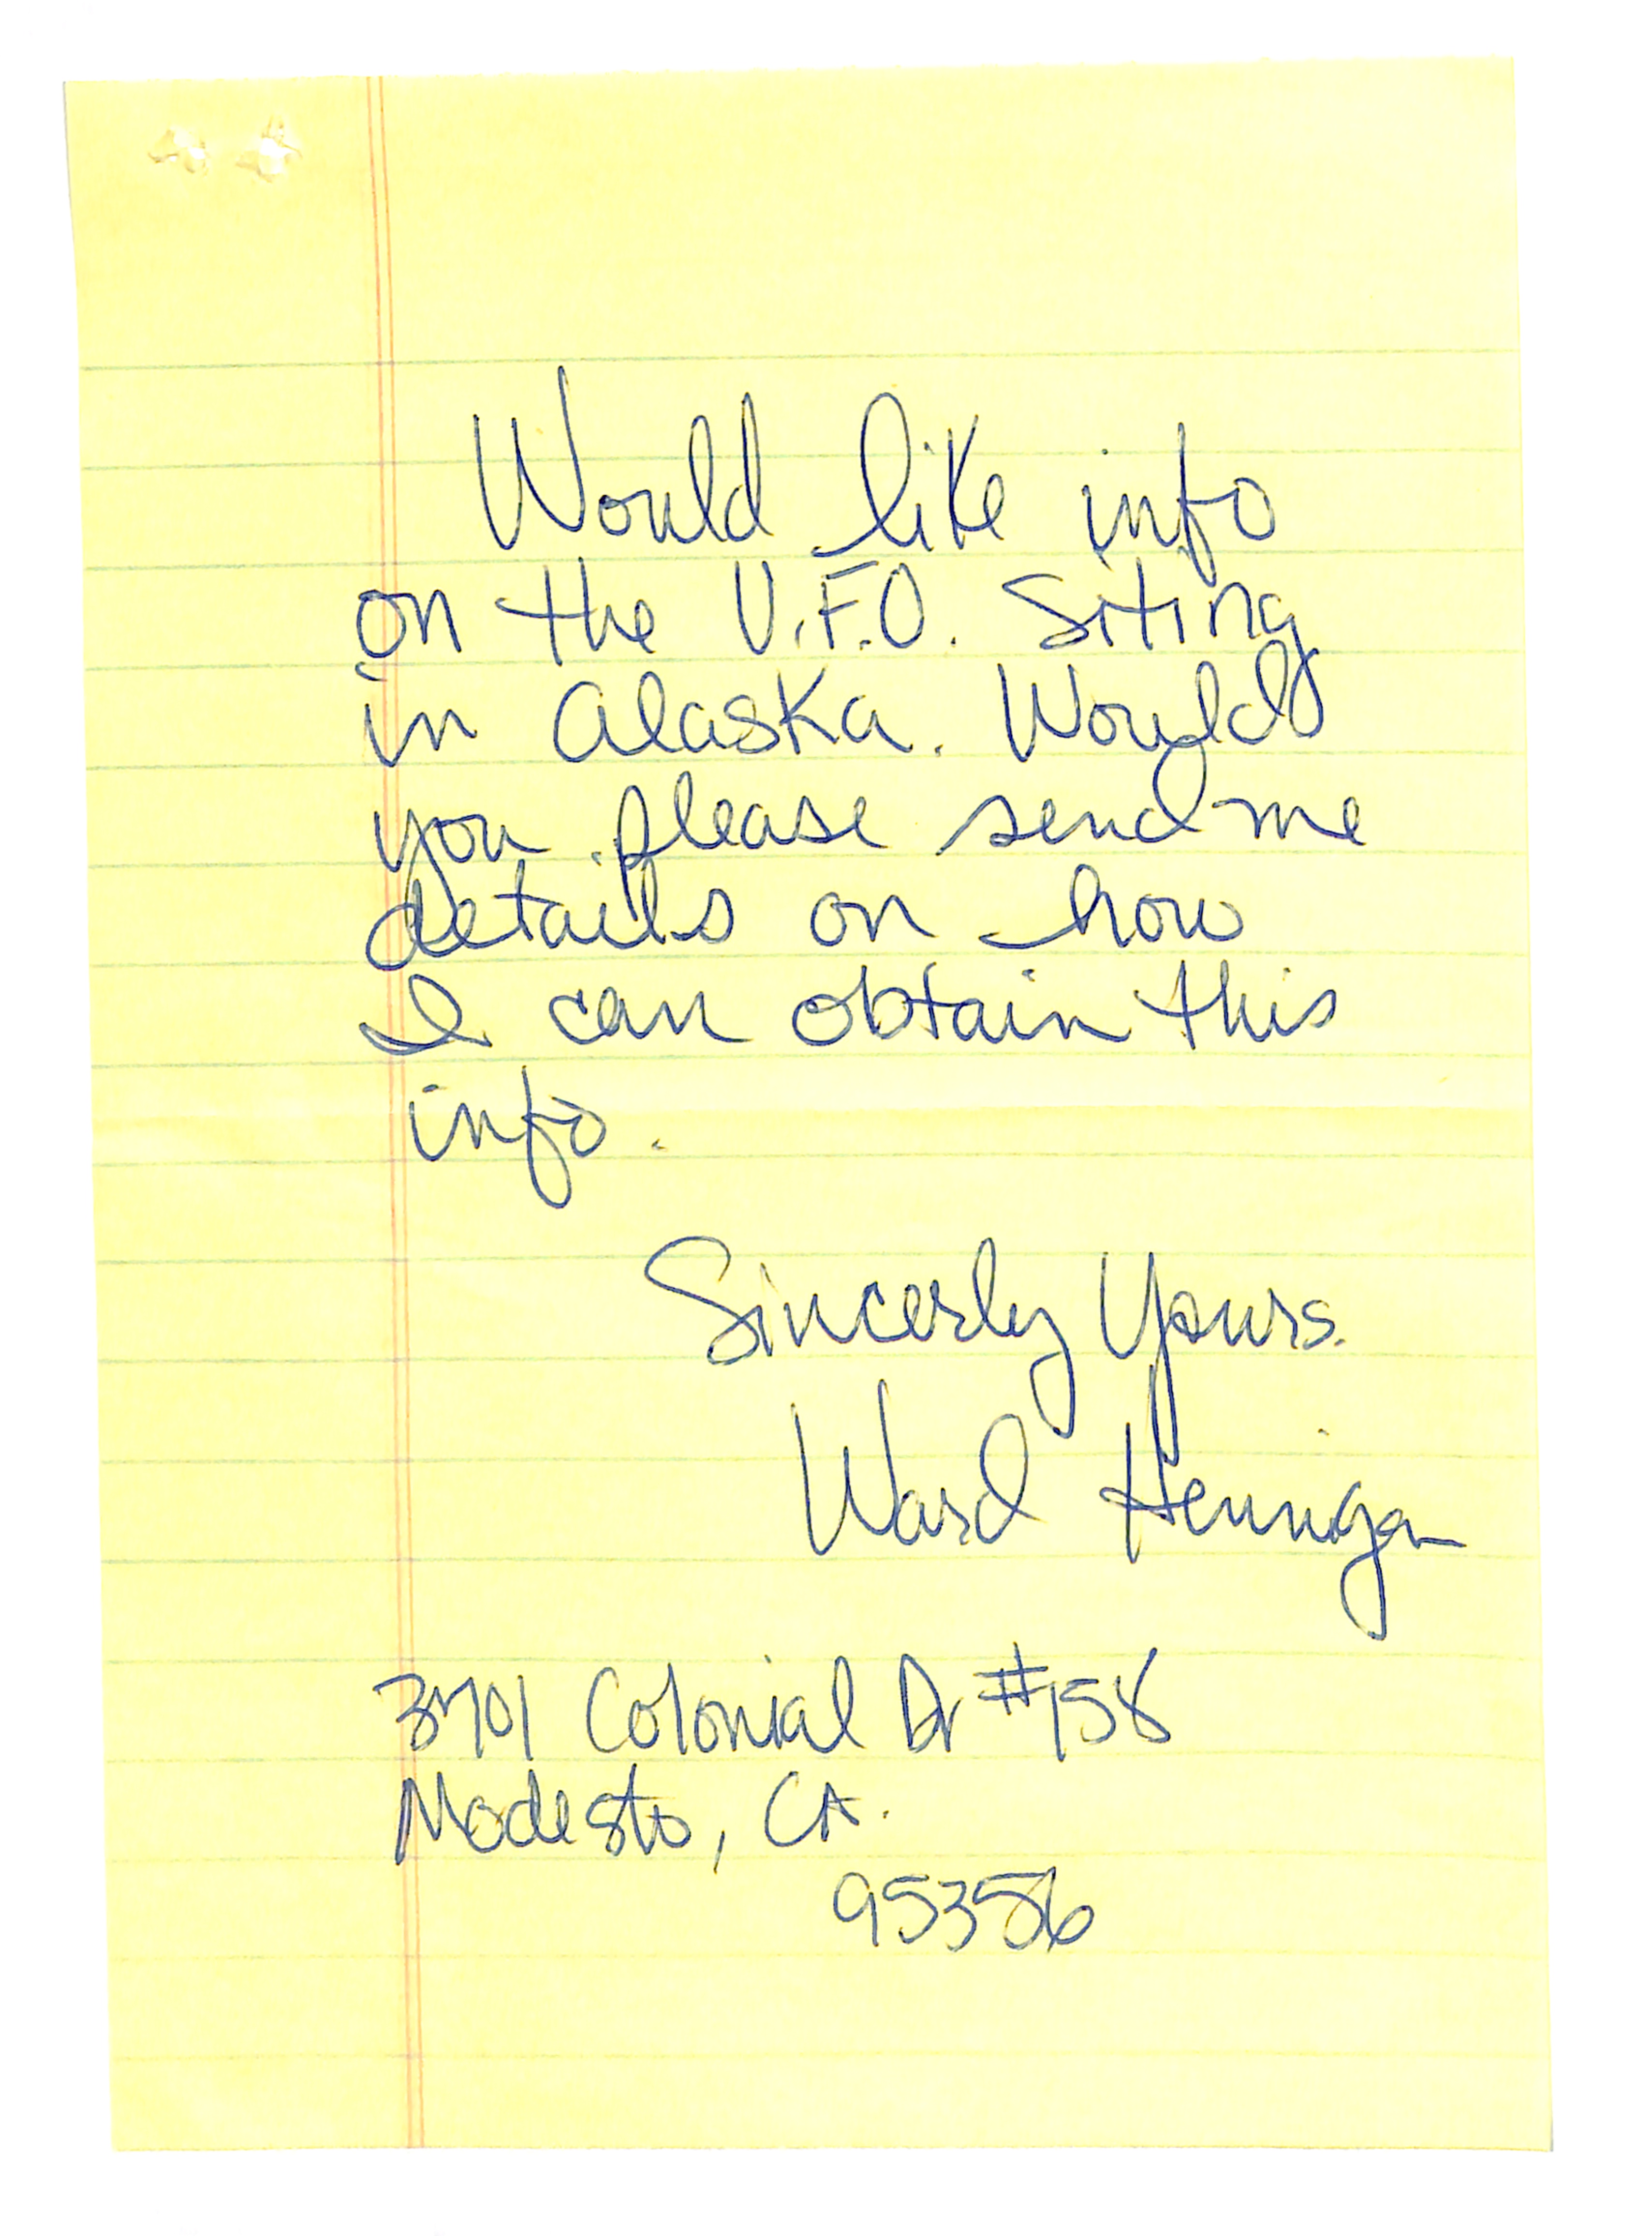 Would like info
on the U.F.O. Siting
in Alaska. Would
you please send me
details on how
I can obtain this
info.
Sincerly Yours.
Ward Hennigan
3701 Colonial Dr #158
Modesto, CA.
95356